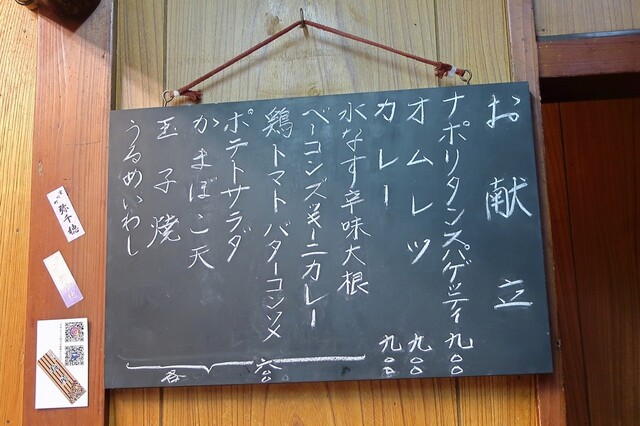 お献立
ナポリタンスパゲッティ 九〇〇
オムレツ 九〇〇
カレー 九〇〇
水なす辛味大根
ベーコンズッキーニカレー
鶏トマトバターコンソメ
ポテトサラダ
かまぼこ天
玉子焼
うるめいわし
各 六〇〇
弥千穂